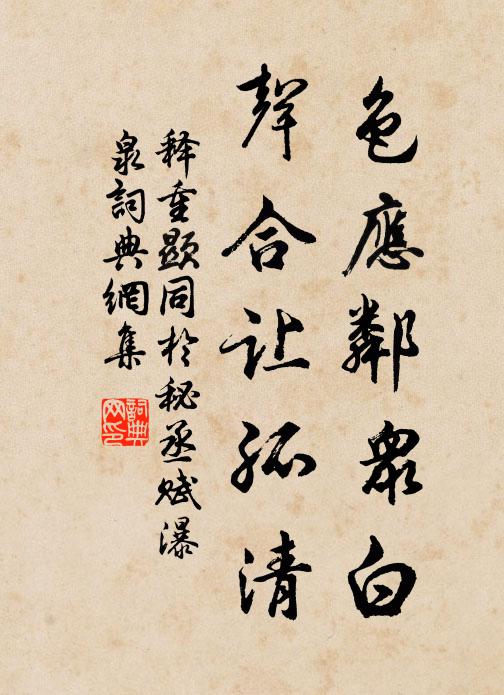 色應鄰衆白
聲合让孤清
释重顯同於秘丞赋瀑
泉詞典網集
詞典
网印